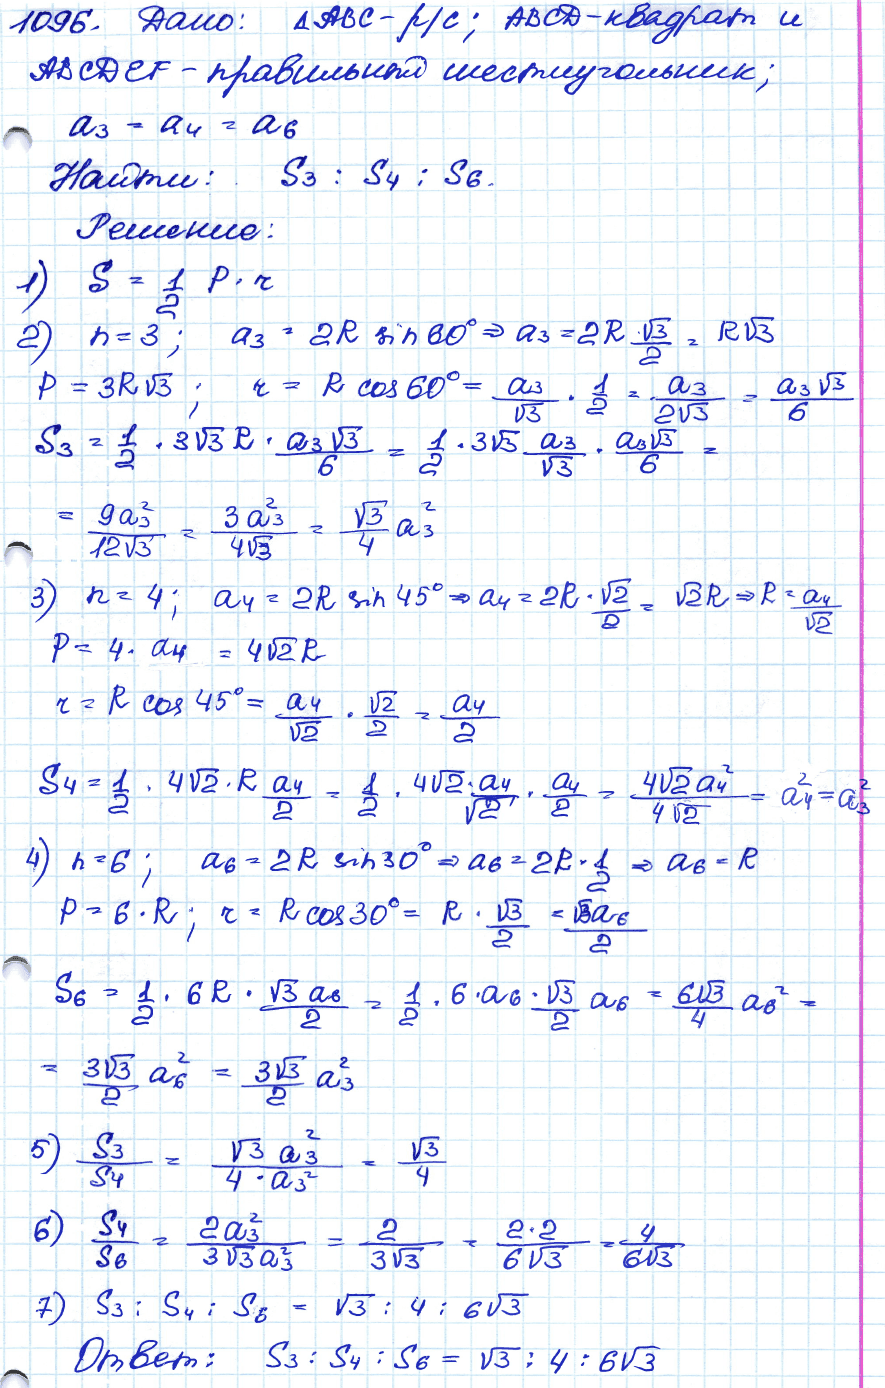 1096. Дано: △ABC - р/с; ABCD - квадрат и
ABCDEF - правильный шестиугольник;
a₃ = a₄ = a₆
Найти: S₃ : S₄ : S₆.
Решение:
1) S = 1/2 P · r
2) n = 3; a₃ = 2R sin 60° ⇒ a₃ = 2R · √3/2 = R√3
P = 3R√3; r = R cos 60° = a₃/√3 · 1/2 = a₃/2√3 = a₃√3/6
S₃ = 1/2 · 3√3 R · a₃√3/6 = 1/2 · 3√3 a₃/√3 · a₃√3/6 =
= 9a₃²/12√3 = 3a₃²/4√3 = √3/4 a₃²
3) n = 4; a₄ = 2R sin 45° ⇒ a₄ = 2R · √2/2 = √2R ⇒ R = a₄/√2
P = 4 · a₄ = 4√2R
r = R cos 45° = a₄/√2 · √2/2 = a₄/2
S₄ = 1/2 · 4√2 · R a₄/2 = 1/2 · 4√2 · a₄/√2 · a₄/2 = 4√2a₄²/4√2 = a₄² = a₃²
4) n = 6; a₆ = 2R sin 30° ⇒ a₆ = 2R · 1/2 ⇒ a₆ = R
P = 6 · R; r = R cos 30° = R · √3/2 = √3a₆/2
S₆ = 1/2 · 6R · √3 a₆/2 = 1/2 · 6 · a₆ · √3/2 a₆ = 6√3/4 a₆² =
= 3√3/2 a₆² = 3√3/2 a₃²
5) S₃/S₄ = √3 a₃²/4 · a₃² = √3/4
6) S₄/S₆ = 2a₃²/3√3a₃² = 2/3√3 = 2·2/6√3 = 4/6√3
7) S₃ : S₄ : S₆ = √3 : 4 : 6√3
Ответ: S₃ : S₄ : S₆ = √3 : 4 : 6√3